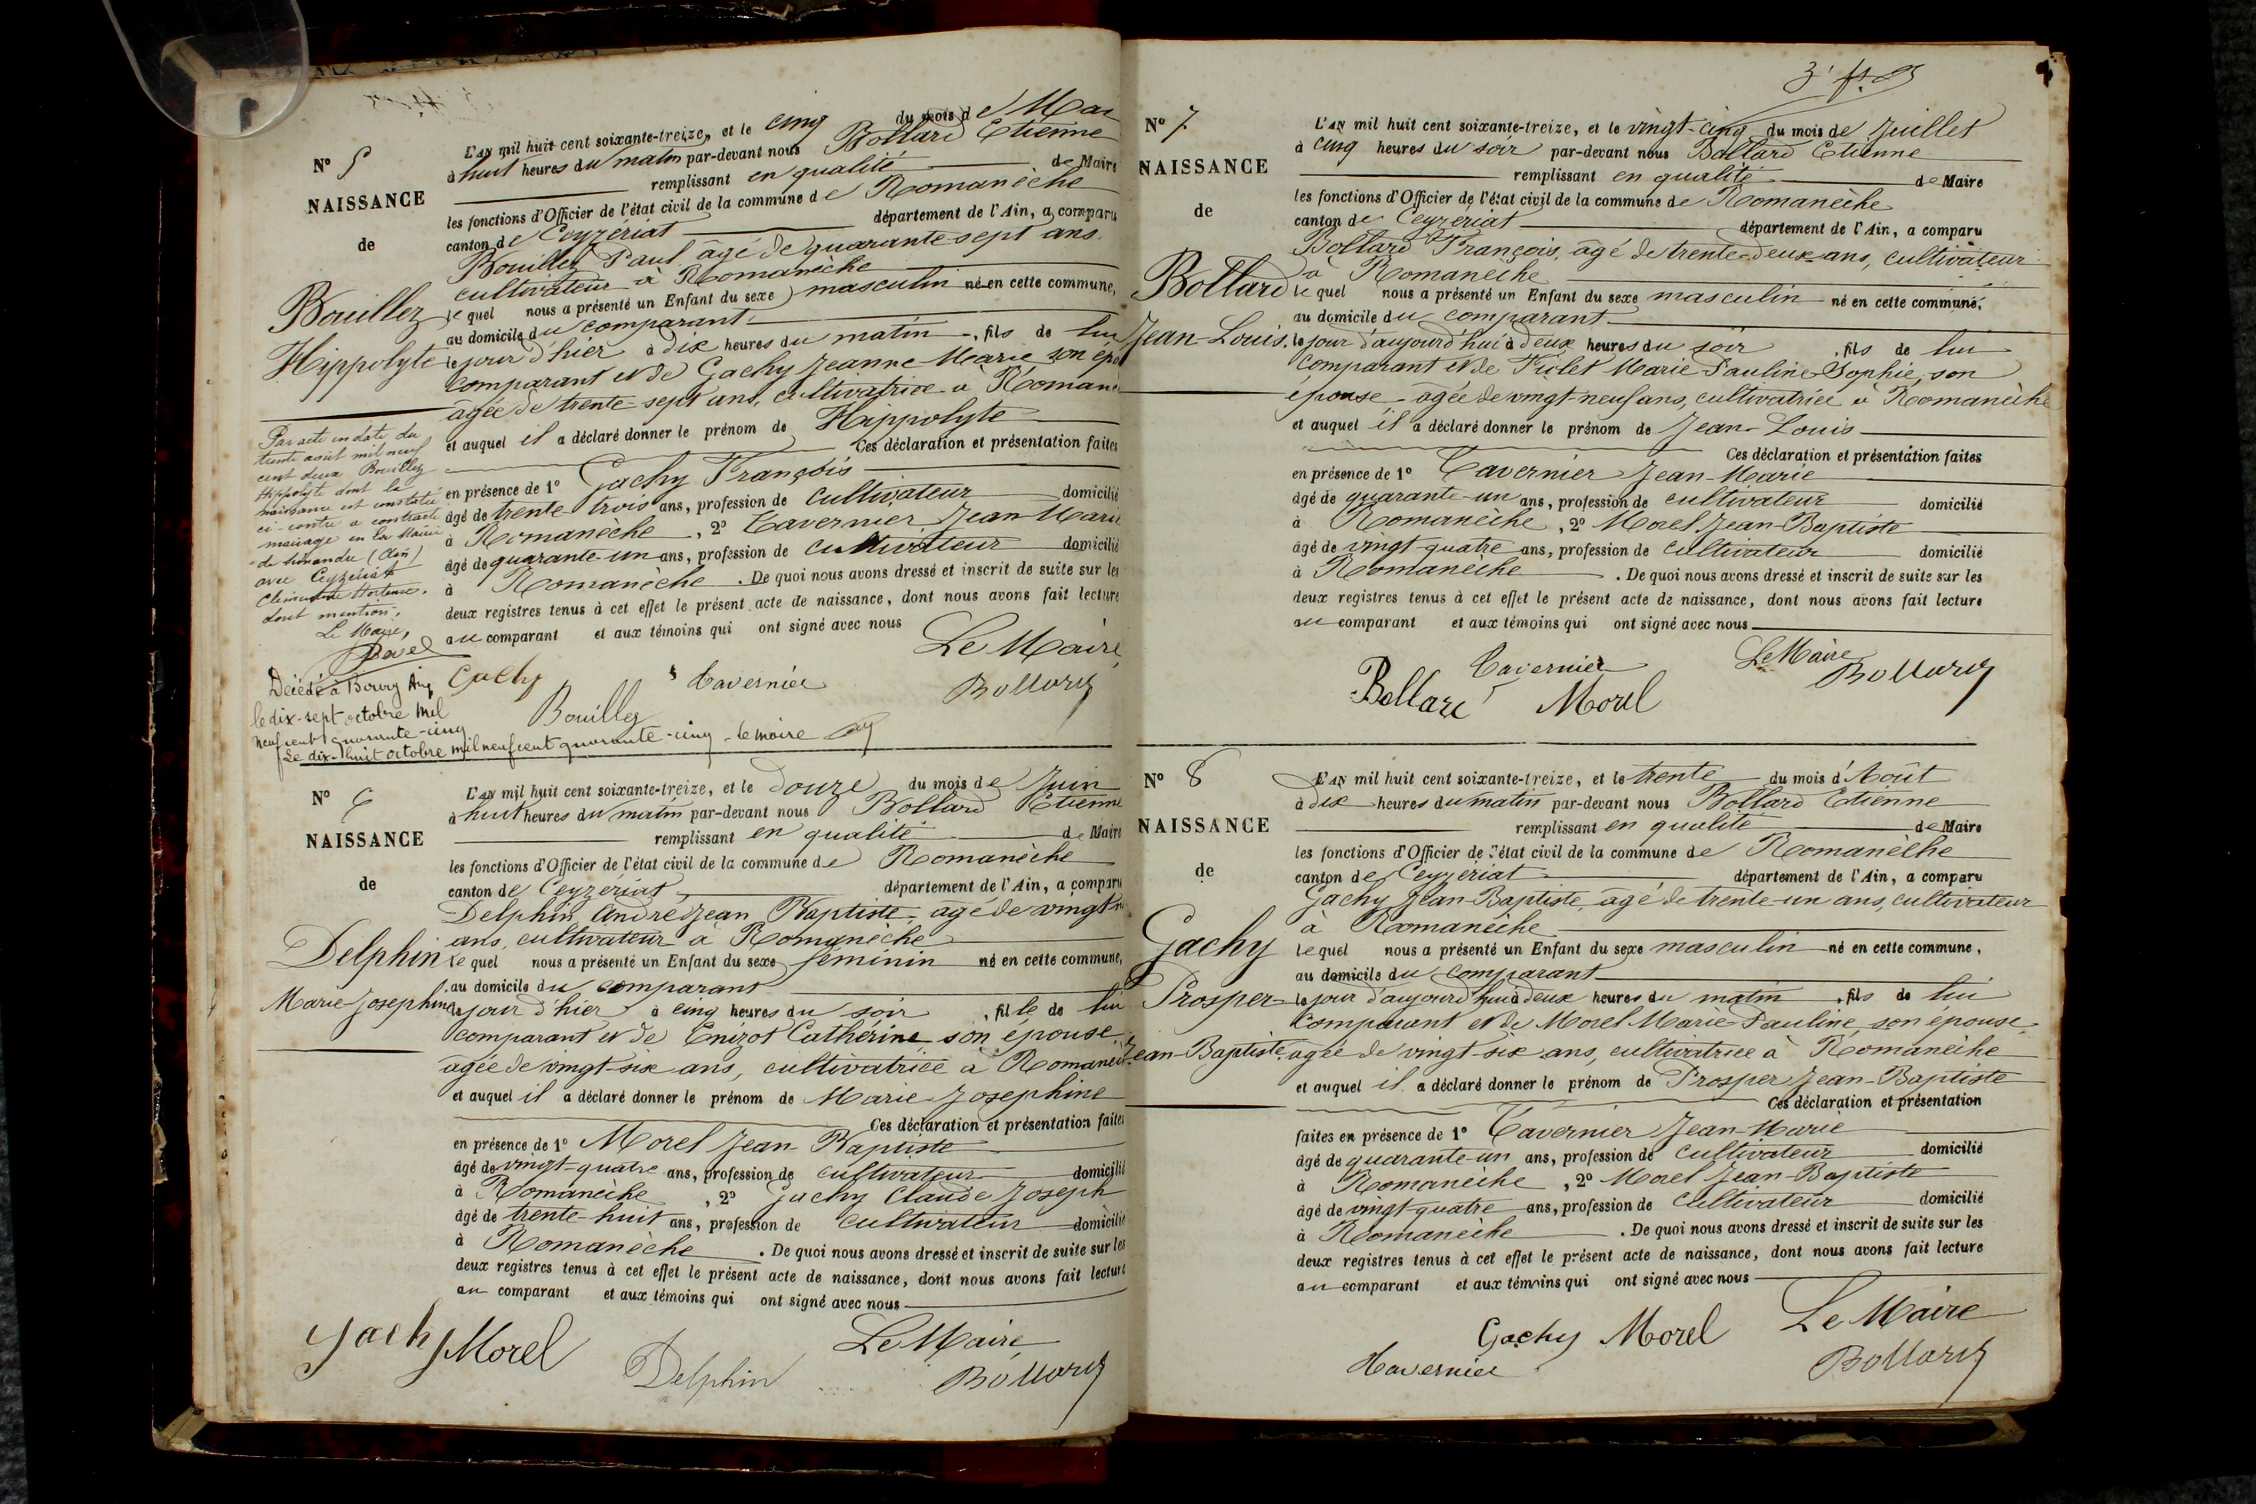 N° 5
NAISSANCE
de
Bouillez
Hippolyte
L'AN mil huit cent soixante-treize, et le cinq du mois de Mai
à huit heures du matin par-devant nous Bollard Etienne
remplissant en qualité de Maire
les fonctions d'Officier de l'état civil de la commune de Romanèche
canton de Ceyzériat département de l'Ain, a comparu
Bouillez Paul âgé de quarante-sept ans
cultivateur à Romanèche
le quel nous a présenté un Enfant du sexe masculin né en cette commune,
au domicile du comparant
le jour d'hier à dix heures du matin, fils de lui
comparant et de Gachy Jeanne Marie son
âgée de trente-sept ans, cultivatrice à
et auquel il a déclaré donner le prénom de Hippolyte
Ces déclaration et présentation faites
en présence de 1° Gachy François
âgé de trente-trois ans, profession de cultivateur domicilié
à Romanèche, 2° Tavernier Jean Marie
âgé de quarante-un ans, profession de cultivateur domicilié
à Romanèche. De quoi nous avons dressé et inscrit de suite sur les
deux registres tenus à cet effet le présent acte de naissance, dont nous avons fait lecture
au comparant et aux témoins qui ont signé avec nous
Le Maire,
Gachy Tavernier Bollard
Bouillez
Par acte en date du
trente août mil neuf
cent deux Bouillez
Hippolyte dont la
naissance est constatée
ci-contre a contracté
mariage en la Mairie
de (Ain)
avec Ceyzériat
Clémentine Hortense,
dont mention.
Le Maire,
Décédé à Bourg Ain
le dix-sept octobre mil
neuf cent quarante-cinq
Le dix-huit octobre mil neuf cent quarante-cinq - le maire
N° 6
NAISSANCE
de
Delphin
Marie Josephine
L'AN mil huit cent soixante-treize, et le douze du mois de Juin
à huit heures du matin par-devant nous Bollard Etienne
remplissant en qualité de Maire
les fonctions d'Officier de l'état civil de la commune de Romanèche
canton de Ceyzériat département de l'Ain, a comparu
Delphin André Jean Baptiste, âgé de vingt
ans, cultivateur à Romanèche
le quel nous a présenté un Enfant du sexe féminin né en cette commune,
au domicile du comparant
le jour d'hier à cinq heures du soir, fille de lui
comparant et de Enizot Cathérine son épouse,
âgée de vingt-six ans, cultivatrice à
et auquel il a déclaré donner le prénom de Marie Josephine
Ces déclaration et présentation faites
en présence de 1° Morel Jean-Baptiste
âgé de vingt-quatre ans, profession de cultivateur domicilié
à Romanèche, 2° Gachy Claude Joseph
âgé de trente-huit ans, profession de cultivateur domicilié
à Romanèche. De quoi nous avons dressé et inscrit de suite sur les
deux registres tenus à cet effet le présent acte de naissance, dont nous avons fait lecture
au comparant et aux témoins qui ont signé avec nous
Le Maire,
Gachy Morel Delphin Bollard
N° 7
NAISSANCE
de
Bollard
Jean-Louis.
L'AN mil huit cent soixante-treize, et le vingt-cinq du mois de Juillet
à cinq heures du soir par-devant nous Bollard Etienne
remplissant en qualité de Maire
les fonctions d'Officier de l'état civil de la commune de Romanèche
canton de Ceyzériat département de l'Ain, a comparu
Bollard François, âgé de trente-deux ans, cultivateur
à Romanèche
le quel nous a présenté un Enfant du sexe masculin né en cette commune,
au domicile du comparant
le jour d'aujourd'hui à deux heures du soir, fils de lui
comparant et de Violet Marie Pauline Sophie, son
épouse âgée de vingt-neuf ans, cultivatrice à Romanèche
et auquel il a déclaré donner le prénom de Jean-Louis
Ces déclaration et présentation faites
en présence de 1° Tavernier Jean-Marie
âgé de quarante-un ans, profession de cultivateur domicilié
à Romanèche, 2° Morel Jean-Baptiste
âgé de vingt-quatre ans, profession de cultivateur domicilié
à Romanèche. De quoi nous avons dressé et inscrit de suite sur les
deux registres tenus à cet effet le présent acte de naissance, dont nous avons fait lecture
au comparant et aux témoins qui ont signé avec nous
Tavernier Le Maire
Bollard Morel Bollard
N° 8
NAISSANCE
de
Gachy
Prosper
Jean-Baptiste
L'AN mil huit cent soixante-treize, et le trente du mois d'Août
à dix heures du matin par-devant nous Bollard Etienne
remplissant en qualité de Maire
les fonctions d'Officier de l'état civil de la commune de Romanèche
canton de Ceyzériat département de l'Ain, a comparu
Gachy Jean-Baptiste, âgé de trente-un ans, cultivateur
à Romanèche
le quel nous a présenté un Enfant du sexe masculin né en cette commune,
au domicile du comparant
le jour d'aujourd'hui à deux heures du matin, fils de lui
comparant et de Morel Marie Pauline, son épouse,
âgée de vingt-six ans, cultivatrice à Romanèche
et auquel il a déclaré donner le prénom de Prosper Jean-Baptiste
Ces déclaration et présentation
faites en présence de 1° Tavernier Jean-Marie
âgé de quarante-un ans, profession de cultivateur domicilié
à Romanèche, 2° Morel Jean-Baptiste
âgé de vingt-quatre ans, profession de cultivateur domicilié
à Romanèche. De quoi nous avons dressé et inscrit de suite sur les
deux registres tenus à cet effet le présent acte de naissance, dont nous avons fait lecture
au comparant et aux témoins qui ont signé avec nous
Gachy Morel Le Maire
Tavernier Bollard